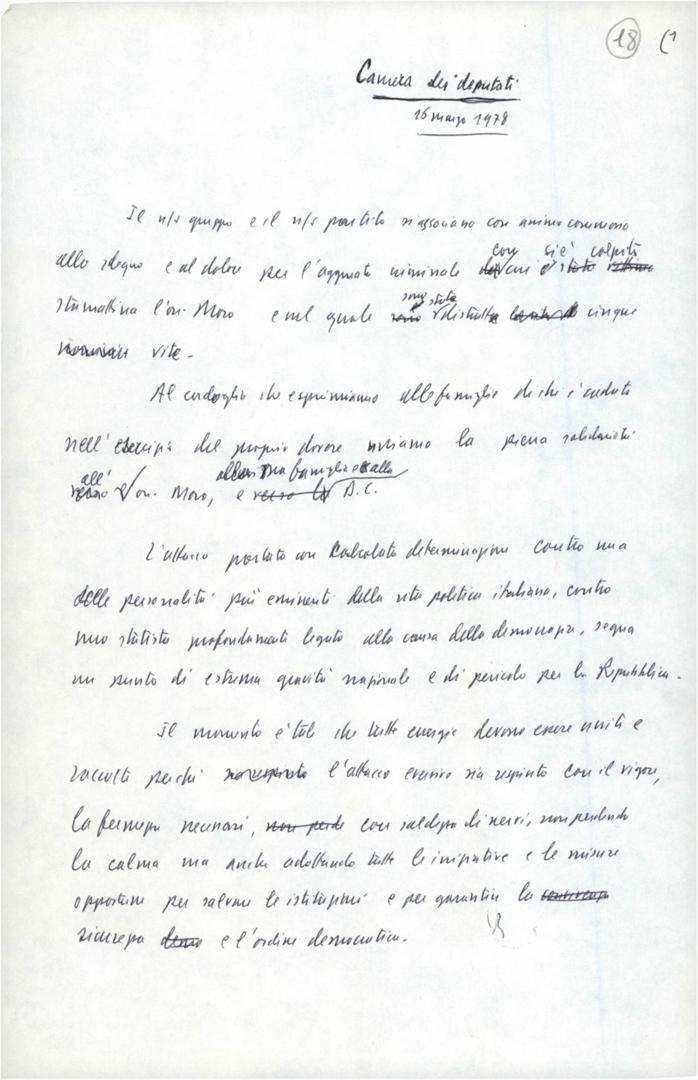 18 (1
Camera dei deputati
16 marzo 1978
Il n/s gruppo e il n/s partito si associano con animo commosso
con si è colpito
allo sdegno e al dolore per l'agguato criminale cui è stato
sono state
stamattina l'on. Moro e nel quale distrutte cinque
vite.
Al cordoglio che esprimiamo alle famiglie di chi è caduto
nell'esercizio del proprio dovere inviamo la piena solidarietà
all' alla sua famiglia e alla
verso on. Moro, e verso la D.C.
L'attacco portato con calcolata determinazione contro una
delle personalità più eminenti della vita politica italiana, contro
uno statista profondamente legato alla causa della democrazia, segna
un punto di estrema gravità nazionale e di pericolo per la Repubblica.
Il momento è tale che tutte energie devono essere unite e
raccolte perché l'attacco eversivo sia respinto con il vigore,
la fermezza necessari, non perde con saldezza di nervi, non perdendo
la calma ma anche adottando tutte le iniziative e le misure
opportune per salvare le istituzioni e per garantire la
sicurezza e l'ordine democratico.